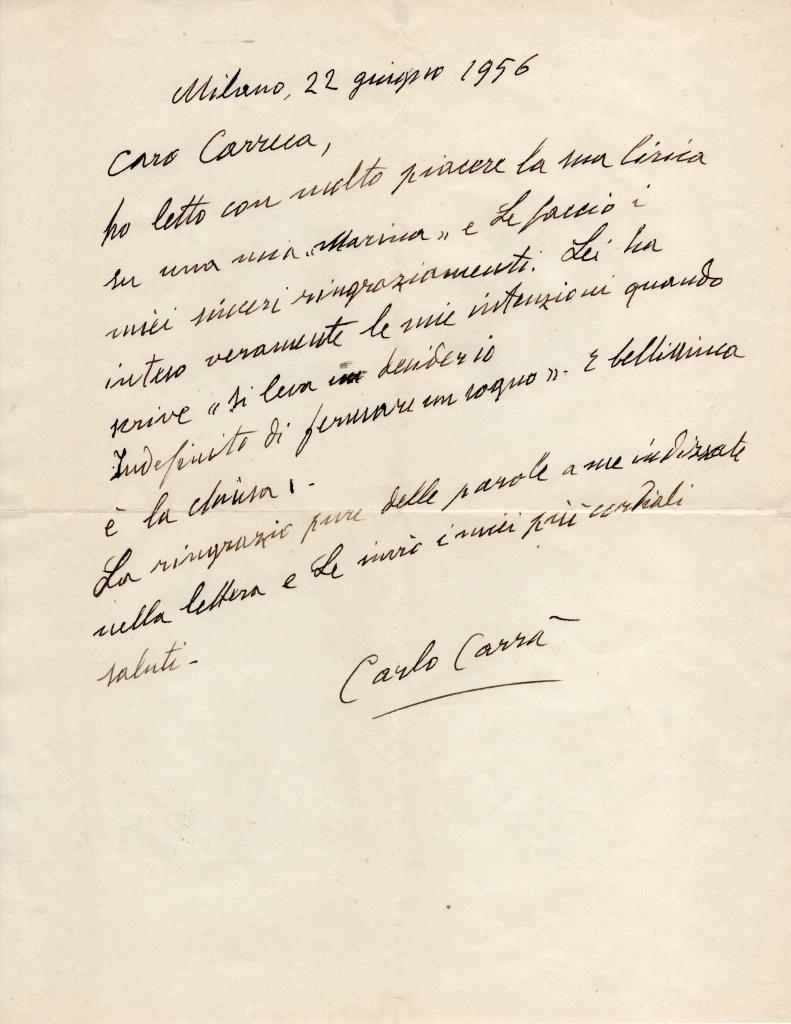 Milano, 22 giugno 1956
Caro Carreca,
ho letto con molto piacere la sua lirica
su una mia "Marina" e Le faccio i
miei sinceri ringraziamenti. Lei ha
inteso veramente le mie intenzioni quando
scrive "si leva un desiderio
Indefinito di fermare un sogno". E bellissima
è la chiusa.
La ringrazio pure delle parole a me indirizzate
nella lettera e Le invio i miei più cordiali
saluti-
Carlo Carrà